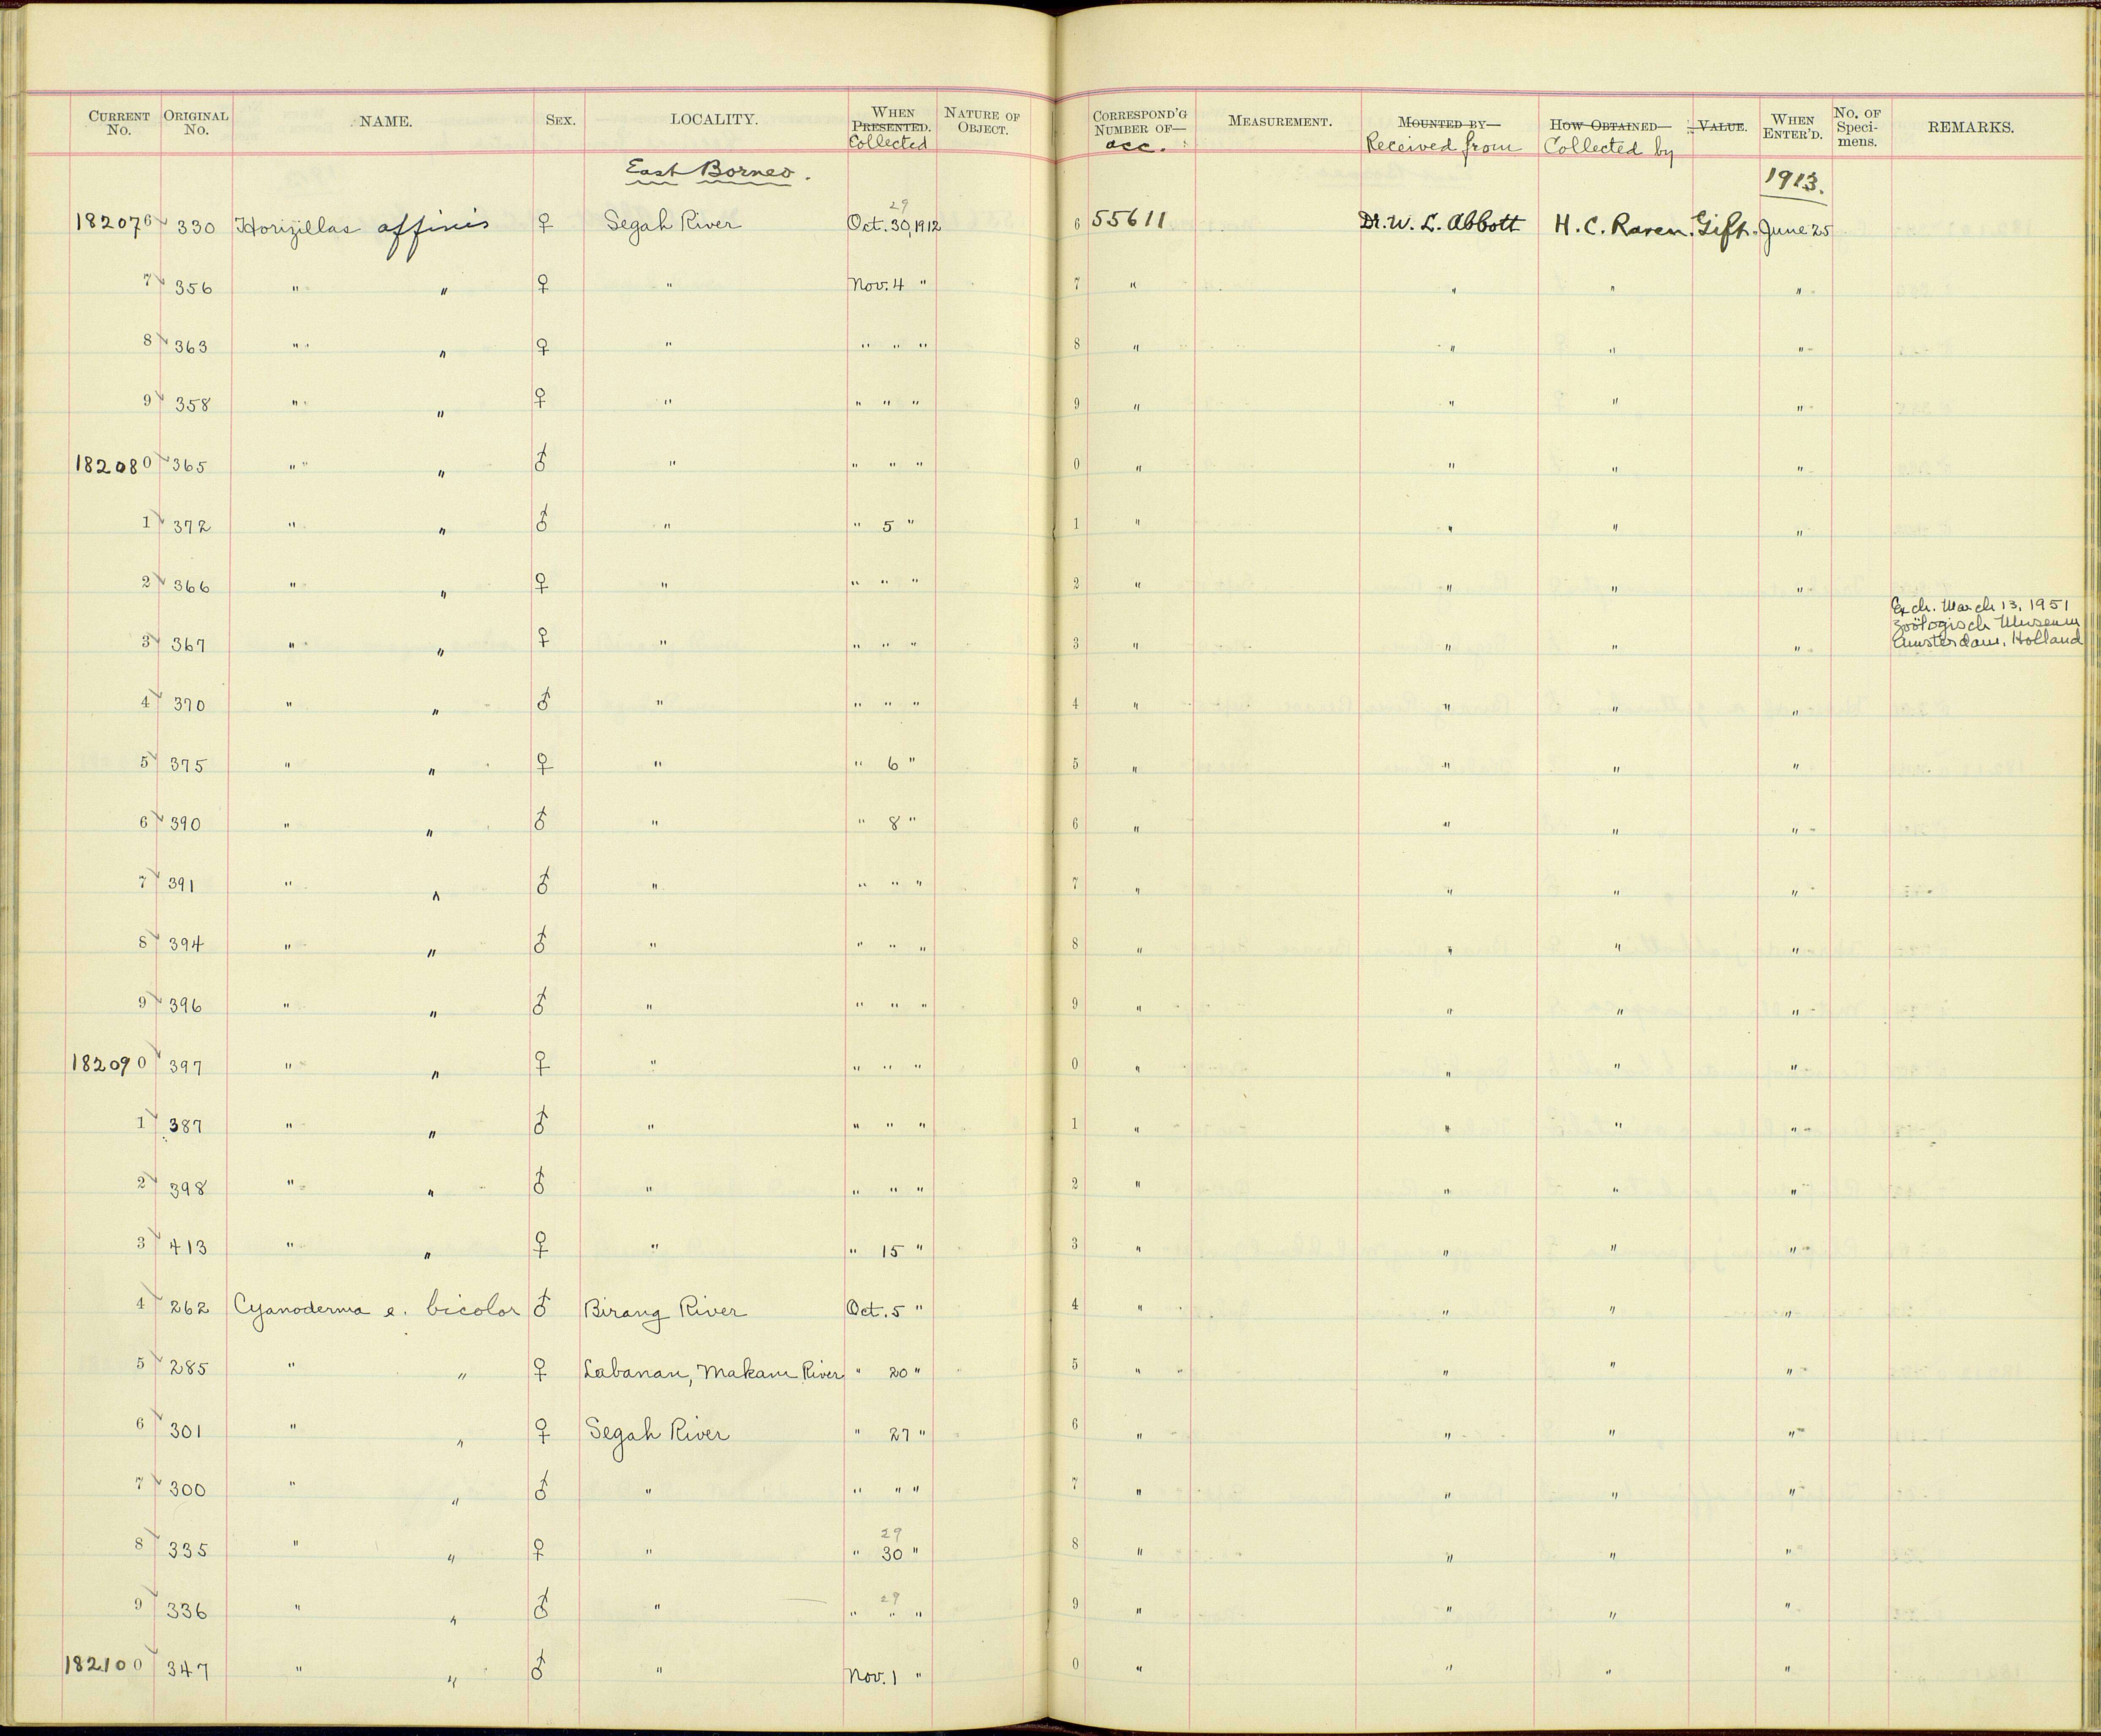 CURRENT No. ORIGINAL No. NAME. SEX. LOCALITY. WHEN PRESENTED. Collected NATURE OF OBJECT. CORRESPOND'G NUMBER OF— acc. MEASUREMENT. MOUNTED BY— Received from HOW OBTAINED— Collected by VALUE. WHEN ENTER'D. No. OF Speci-mens. REMARKS.
East Borneo. 1913.
29
182076 330 Horizillas affinis ♀ Segah River Oct. 30, 1912 6 55611 Dr. W. L. Abbott H. C. Raven. Gift. June 25
7 356 " " ♀ " Nov. 4 " 7 " " " "
8 363 " " ♀ " " " " 8 " " " "
9 358 " " ♀ " " " " 9 " " " "
182080 365 " " ♂ " " " " 0 " " " "
1 372 " " ♂ " " 5 " 1 " " " "
2 366 " " ♀ " " " " 2 " " " "
3 367 " " ♀ " " " " 3 " " " " Exch. March 13, 1951
Zoölogisch Museum
Amsterdam, Holland
4 370 " " ♂ " " " " 4 " " " "
5 375 " " ♀ " " 6 " 5 " " " "
6 390 " " ♂ " " 8 " 6 " " " "
7 391 " " ♂ " " " " 7 " " " "
8 394 " " ♂ " " " " 8 " " " "
9 396 " " ♂ " " " " 9 " " " "
182090 397 " " ♀ " " " " 0 " " " "
1 387 " " ♂ " " " " 1 " " " "
2 398 " " ♂ " " " " 2 " " " "
3 413 " " ♀ " " 15 " 3 " " " "
4 262 Cyanoderma e. bicolor ♂ Birang River Oct. 5 " 4 " " " "
5 285 " " ♀ Labanan, Makam River " 20 " 5 " " " "
6 301 " " ♀ Segah River " 27 " 6 " " " "
7 300 " " ♂ " " " " 7 " " " "
29
8 335 " " ♀ " " 30 " 8 " " " "
29
9 336 " " ♂ " " " " 9 " " " "
182100 347 " " ♂ " Nov. 1 " 0 " " " "